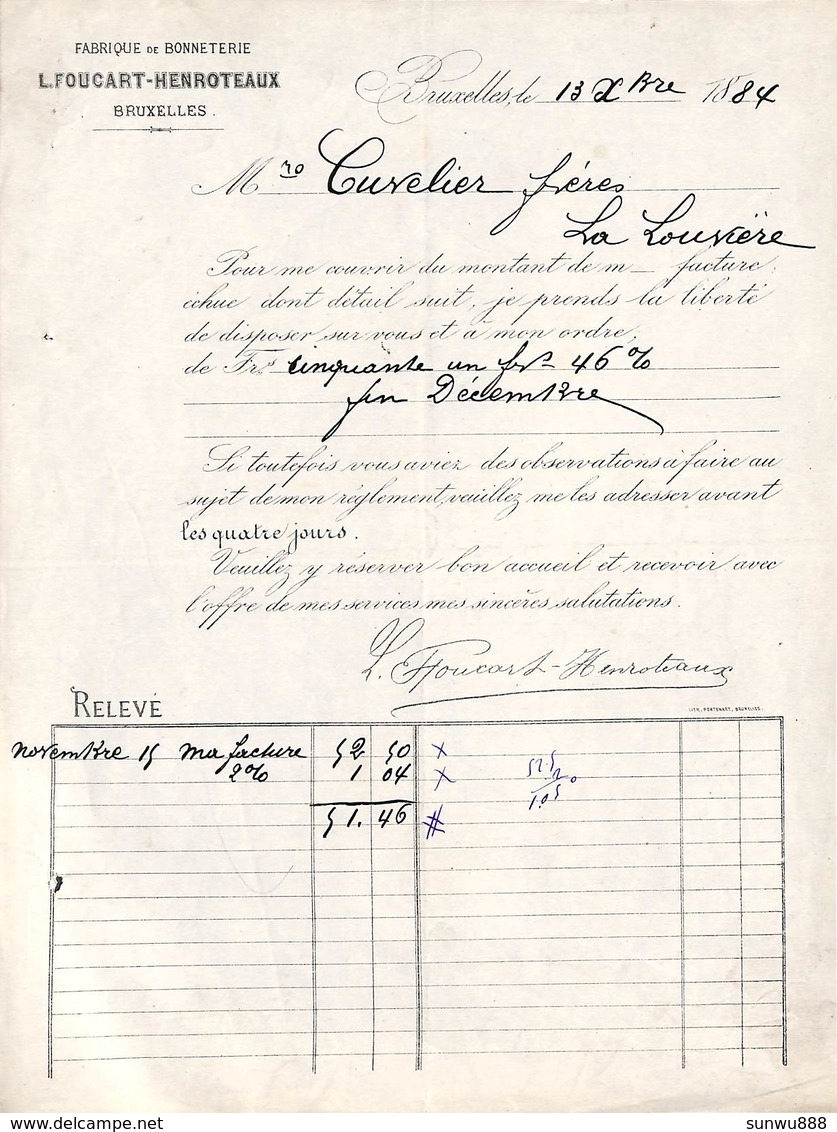 FABRIQUE DE BONNETERIE
L. FOUCART-HENROTEAUX
BRUXELLES.
Bruxelles, le 13 Xbre 1884
Mrs Cuvelier frères
La Louvière
Pour me couvrir du montant de m_ facture,
échue dont détail suit, je prends la liberté
de disposer sur vous et à mon ordre,
de Frs cinquante un frs 46 %
fin Décembre
Si toutefois vous aviez des observations à faire au
sujet de mon réglement, veuillez me les adresser avant
les quatre jours.
Veuillez y réserver bon accueil et recevoir avec
l'offre de mes services mes sincères salutations.
L. Foucart-Henroteaux
RELEVÉ
LITH. PORTENART, BRUXELLES.
novembre 15 ma facture 52 50 x
2% 1 04 x
51.46 #
52.5
2%
1.05
DELCAMPE.NET
sunwu888